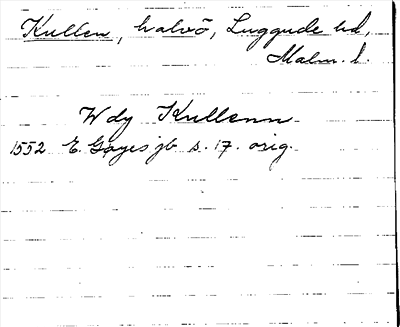 Kullen, halvö, Luggude hd,
Malm. l.
Wdy Kullenn
1552 E. Gøyes jb s. 17. orig.